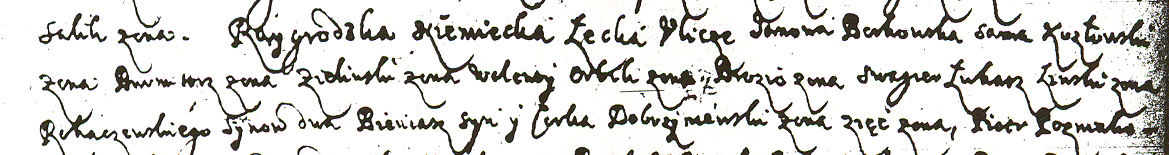 Salik zona. Raygrodzka Niemiecka Łecka Ulicze Janowa Berkowska sama Kozłowski
zona Burmistrz zona Zieliński zona Walenty Orbeli zona, Brozio zona Swagier Łukasz Liński zona
Rekaczewskiego synow dwa Bieniasz syn y Corka Dobrzyniewski zona zięć zona, Piotr